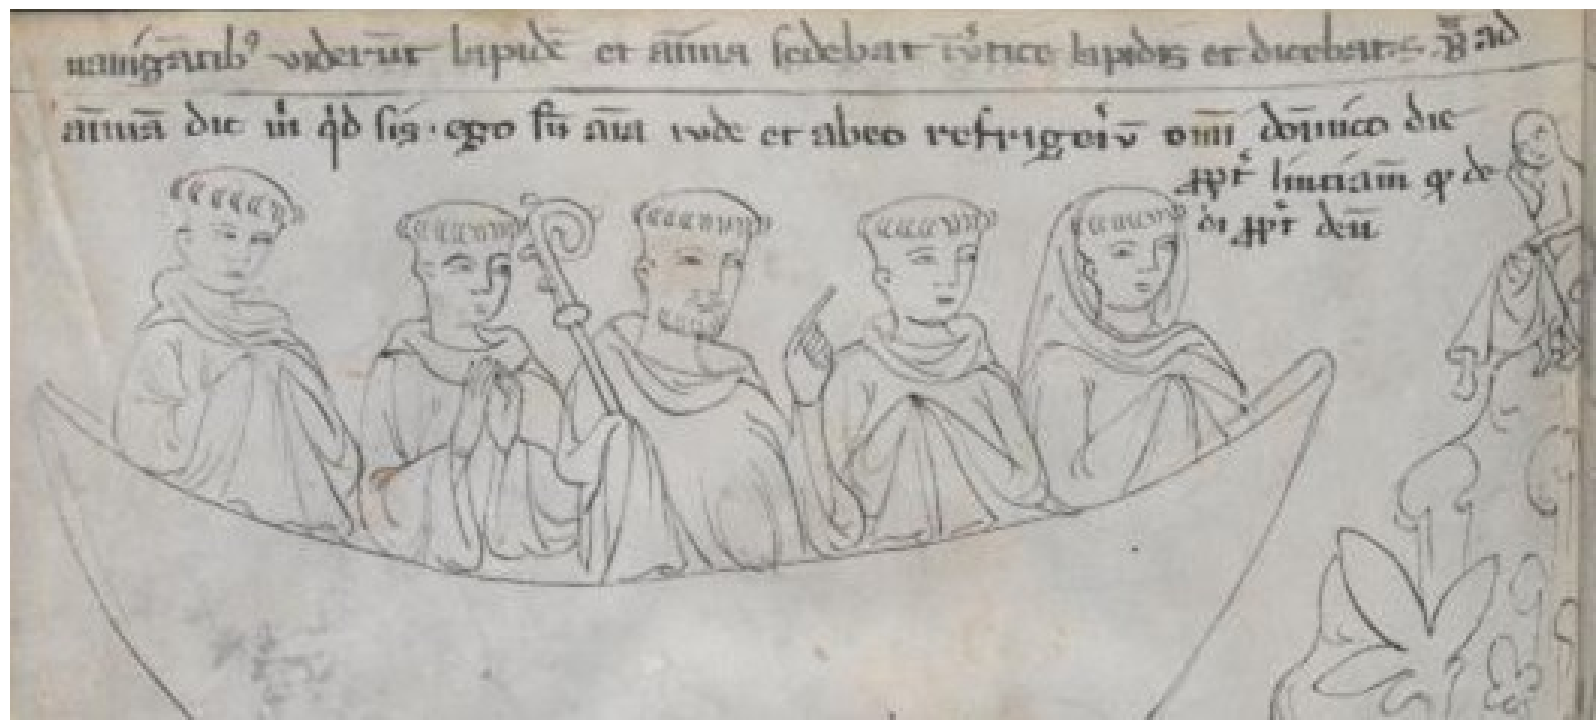 nauigātib⁹ viderūt lapidē et aīma sedebat ī v̾tice lapidis et dicebat S. B̄ ad
aīmā dic m̍ qd sis · ego sū aīa iude et abeo refrigeiū om̄i domīco die
ꝓpt̾ de
di ꝓpt̾ deū